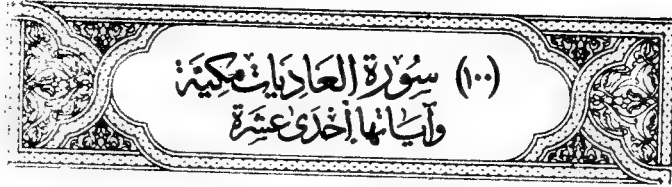 (١٠٠) سُورَةُ العَادِيَاتِ مَكِيَّة
وَآيَاتُهَا إِحْدَى عَشِرَة